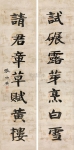 試碾露芽烹白雪
請君章草賦黃樓